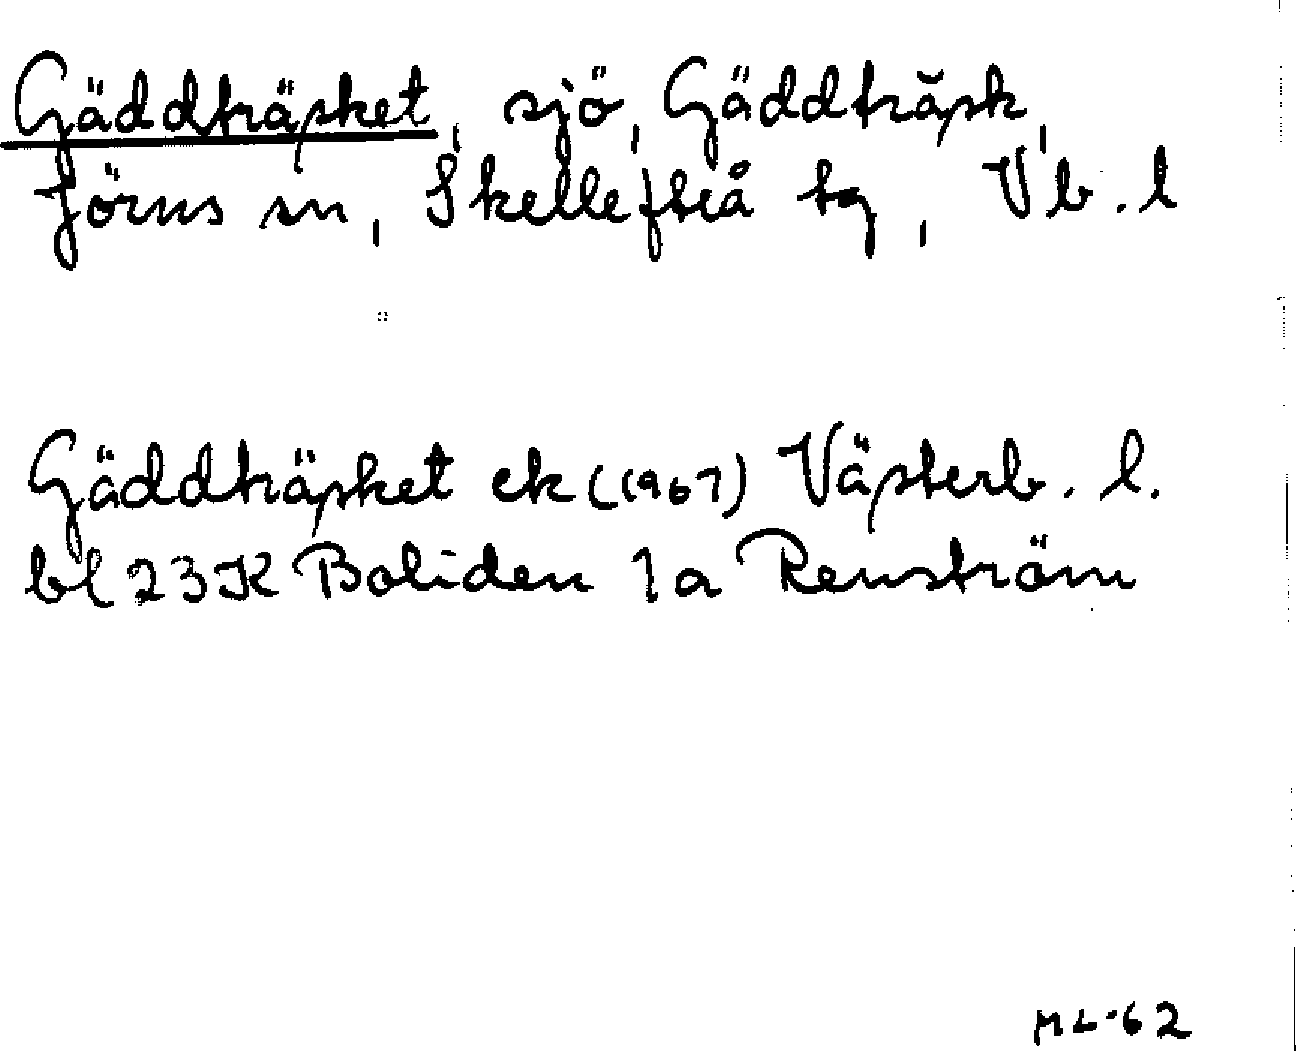 Gäddträsket, sjö, Gäddträsk,
Jörns sn, Skellefteå tg, Vb. l
Gäddträsket ek (1967) Västerb. l.
bl 23K Boliden 1a Renström
ML-62